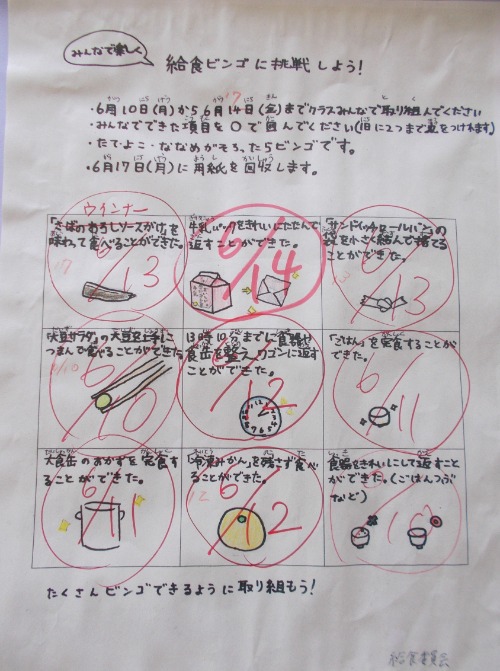 みんなで楽しく
給食ビンゴに挑戦しよう!
・6月10日(月)から6月14日(金)までクラスみんなで取り組んでください
17
・みんなでできた項目を○で囲んでください(1日に2つまで
・たて・よこ・ななめがそろったらビンゴです。
・6月17日(月)に用紙を回収します。
ウインナー
「さばのおろしソースがけ」を
味わって食べることができた。
17
6/13
牛乳パックをきれいにたたんで
返すことができた。
6/14
「サンドイッチロールパン」の
袋を小さく結んで捨てる
ことができた。
6/13
「大豆サラダ」の大豆を上手に
つまんで食べることができた。
6/10
13時10分までに食器や
食缶を整え、ワゴンに返す
ことができた。
6/12
「ごはん」を完食することが
できた。
6/11
大食缶のおかずを完食する
ことができた。
6/11
「冷凍みかん」を残さず食べ
ることができた。
12
6/12
食器をきれいにして返すこと
ができた。(ごはんつぶ
など)
たくさんビンゴできるように取り組もう!
給食委員会